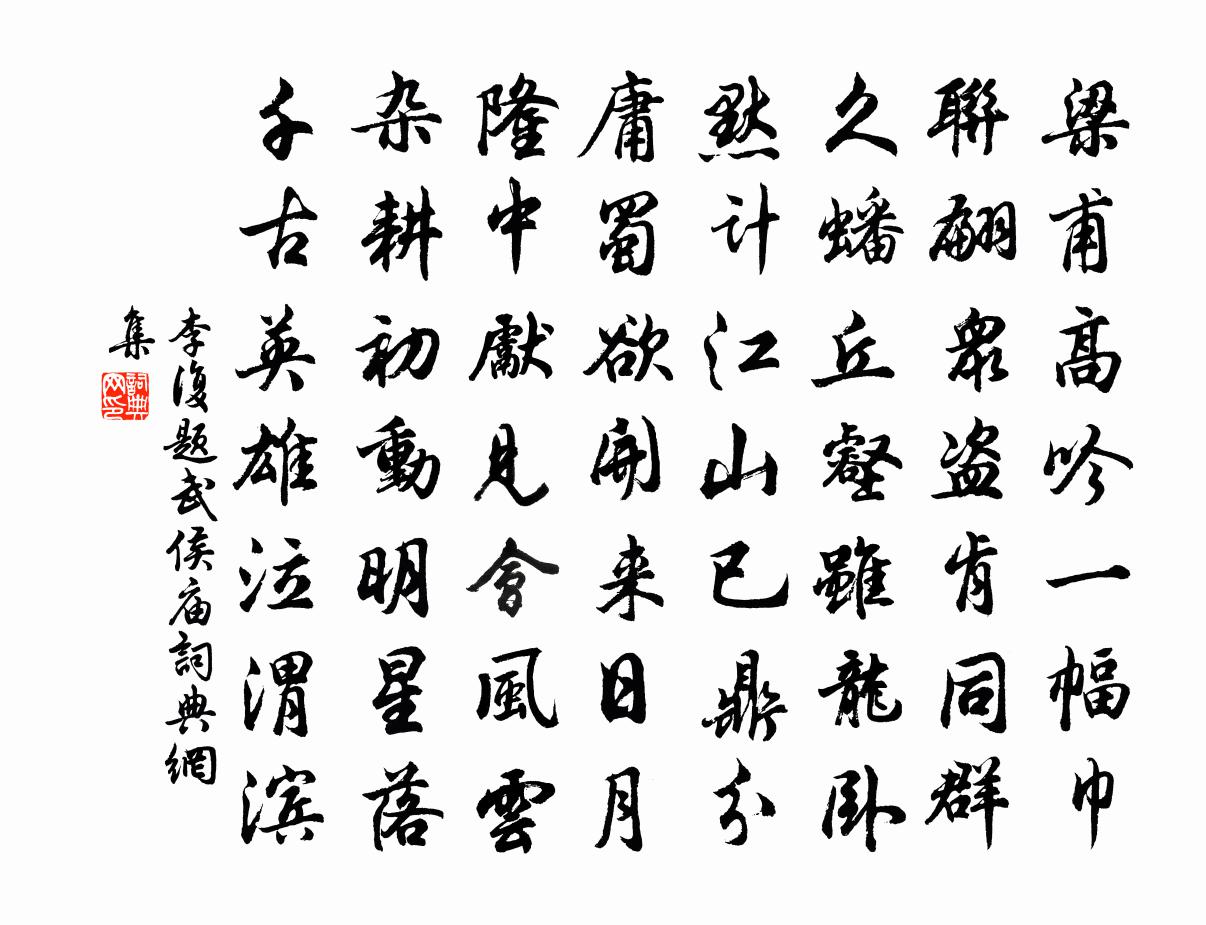 梁甫高吟一幅巾
聯翩衆盗肯同群
久蟠丘壑雖龍卧
黙计江山已鼎分
庸蜀欲開来日月
隆中獻見會風雲
杂耕初動明星落
千古英雄泣渭滨
李復题武侯庙詞典網
集
詞典网印